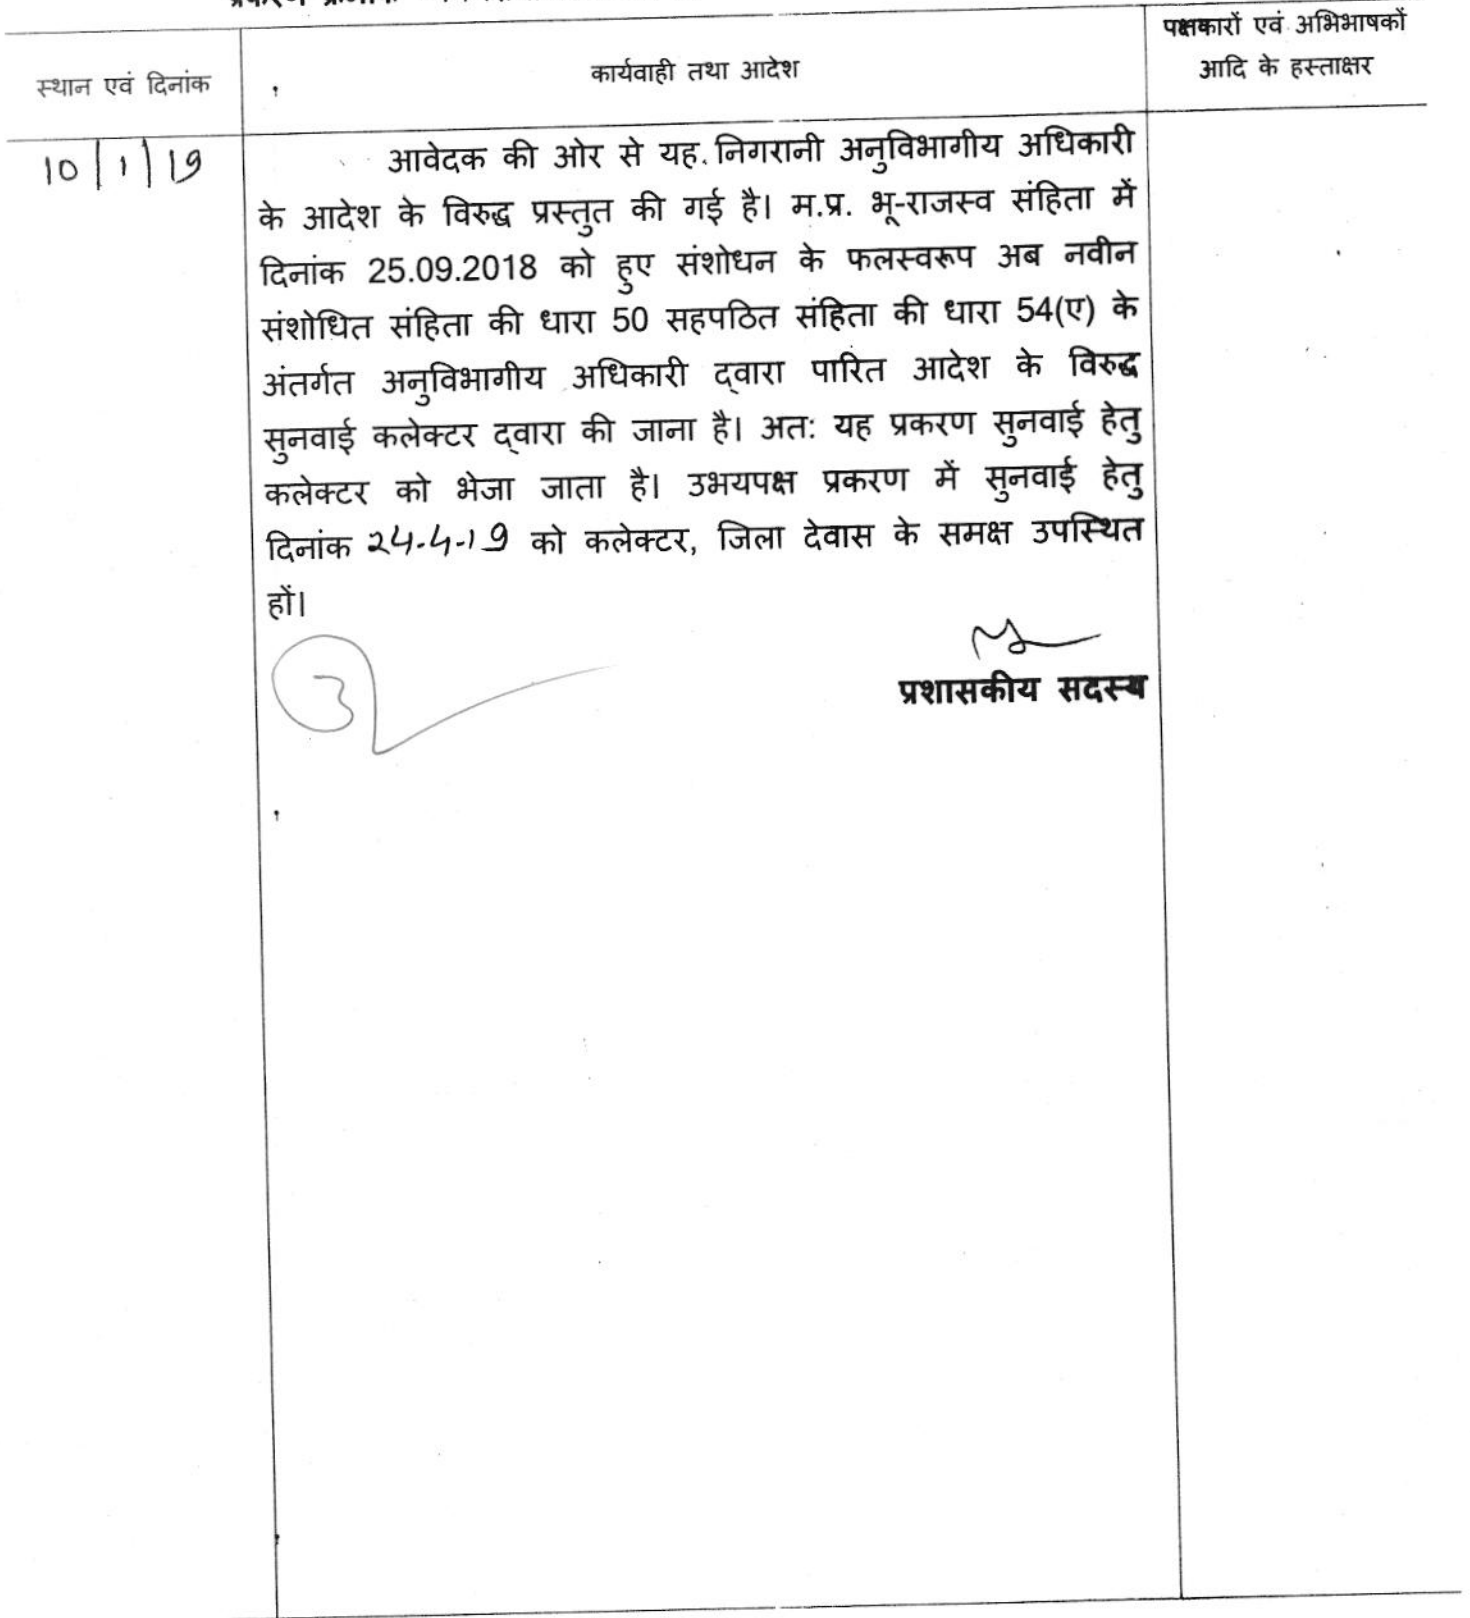 पक्षकारों एवं अभिभाषकों
आदि के हस्ताक्षर
स्थान एवं दिनांक
कार्यवाही तथा आदेश
10/1/19
आवेदक की ओर से यह निगरानी अनुविभागीय अधिकारी
के आदेश के विरुद्ध प्रस्तुत की गई है। म.प्र. भू-राजस्व संहिता में
दिनांक 25.09.2018 को हुए संशोधन के फलस्वरूप अब नवीन
संशोधित संहिता की धारा 50 सहपठित संहिता की धारा 54(ए) के
अंतर्गत अनुविभागीय अधिकारी द्वारा पारित आदेश के विरुद्ध
सुनवाई कलेक्टर द्वारा की जाना है। अतः यह प्रकरण सुनवाई हेतु
कलेक्टर को भेजा जाता है। उभयपक्ष प्रकरण में सुनवाई हेतु
दिनांक 24-4-19 को कलेक्टर, जिला देवास के समक्ष उपस्थित
हों।
प्रशासकीय सदस्य